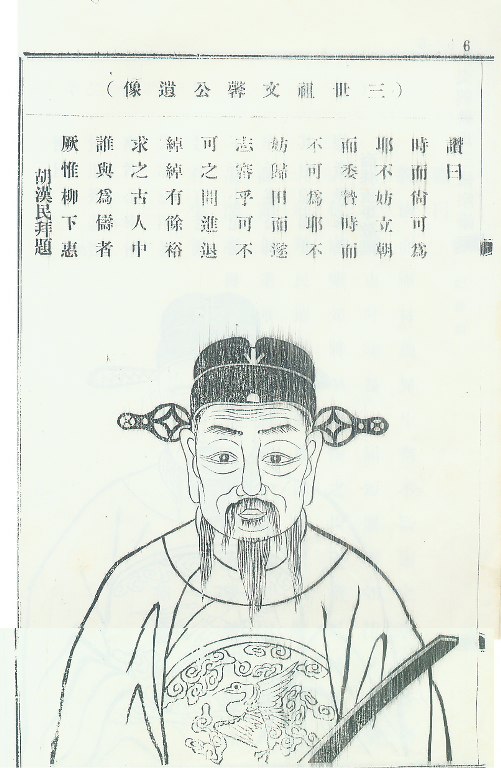 6
（三世祖文馨公遺像）
讚曰
時而尙可爲
耶不妨立朝
而委贄時而
不可爲耶不
妨歸田而遂
志審乎可不
可之間進退
綽綽有餘裕
求之古人中
誰與爲儔者
厥惟柳下惠
胡漢民拜題